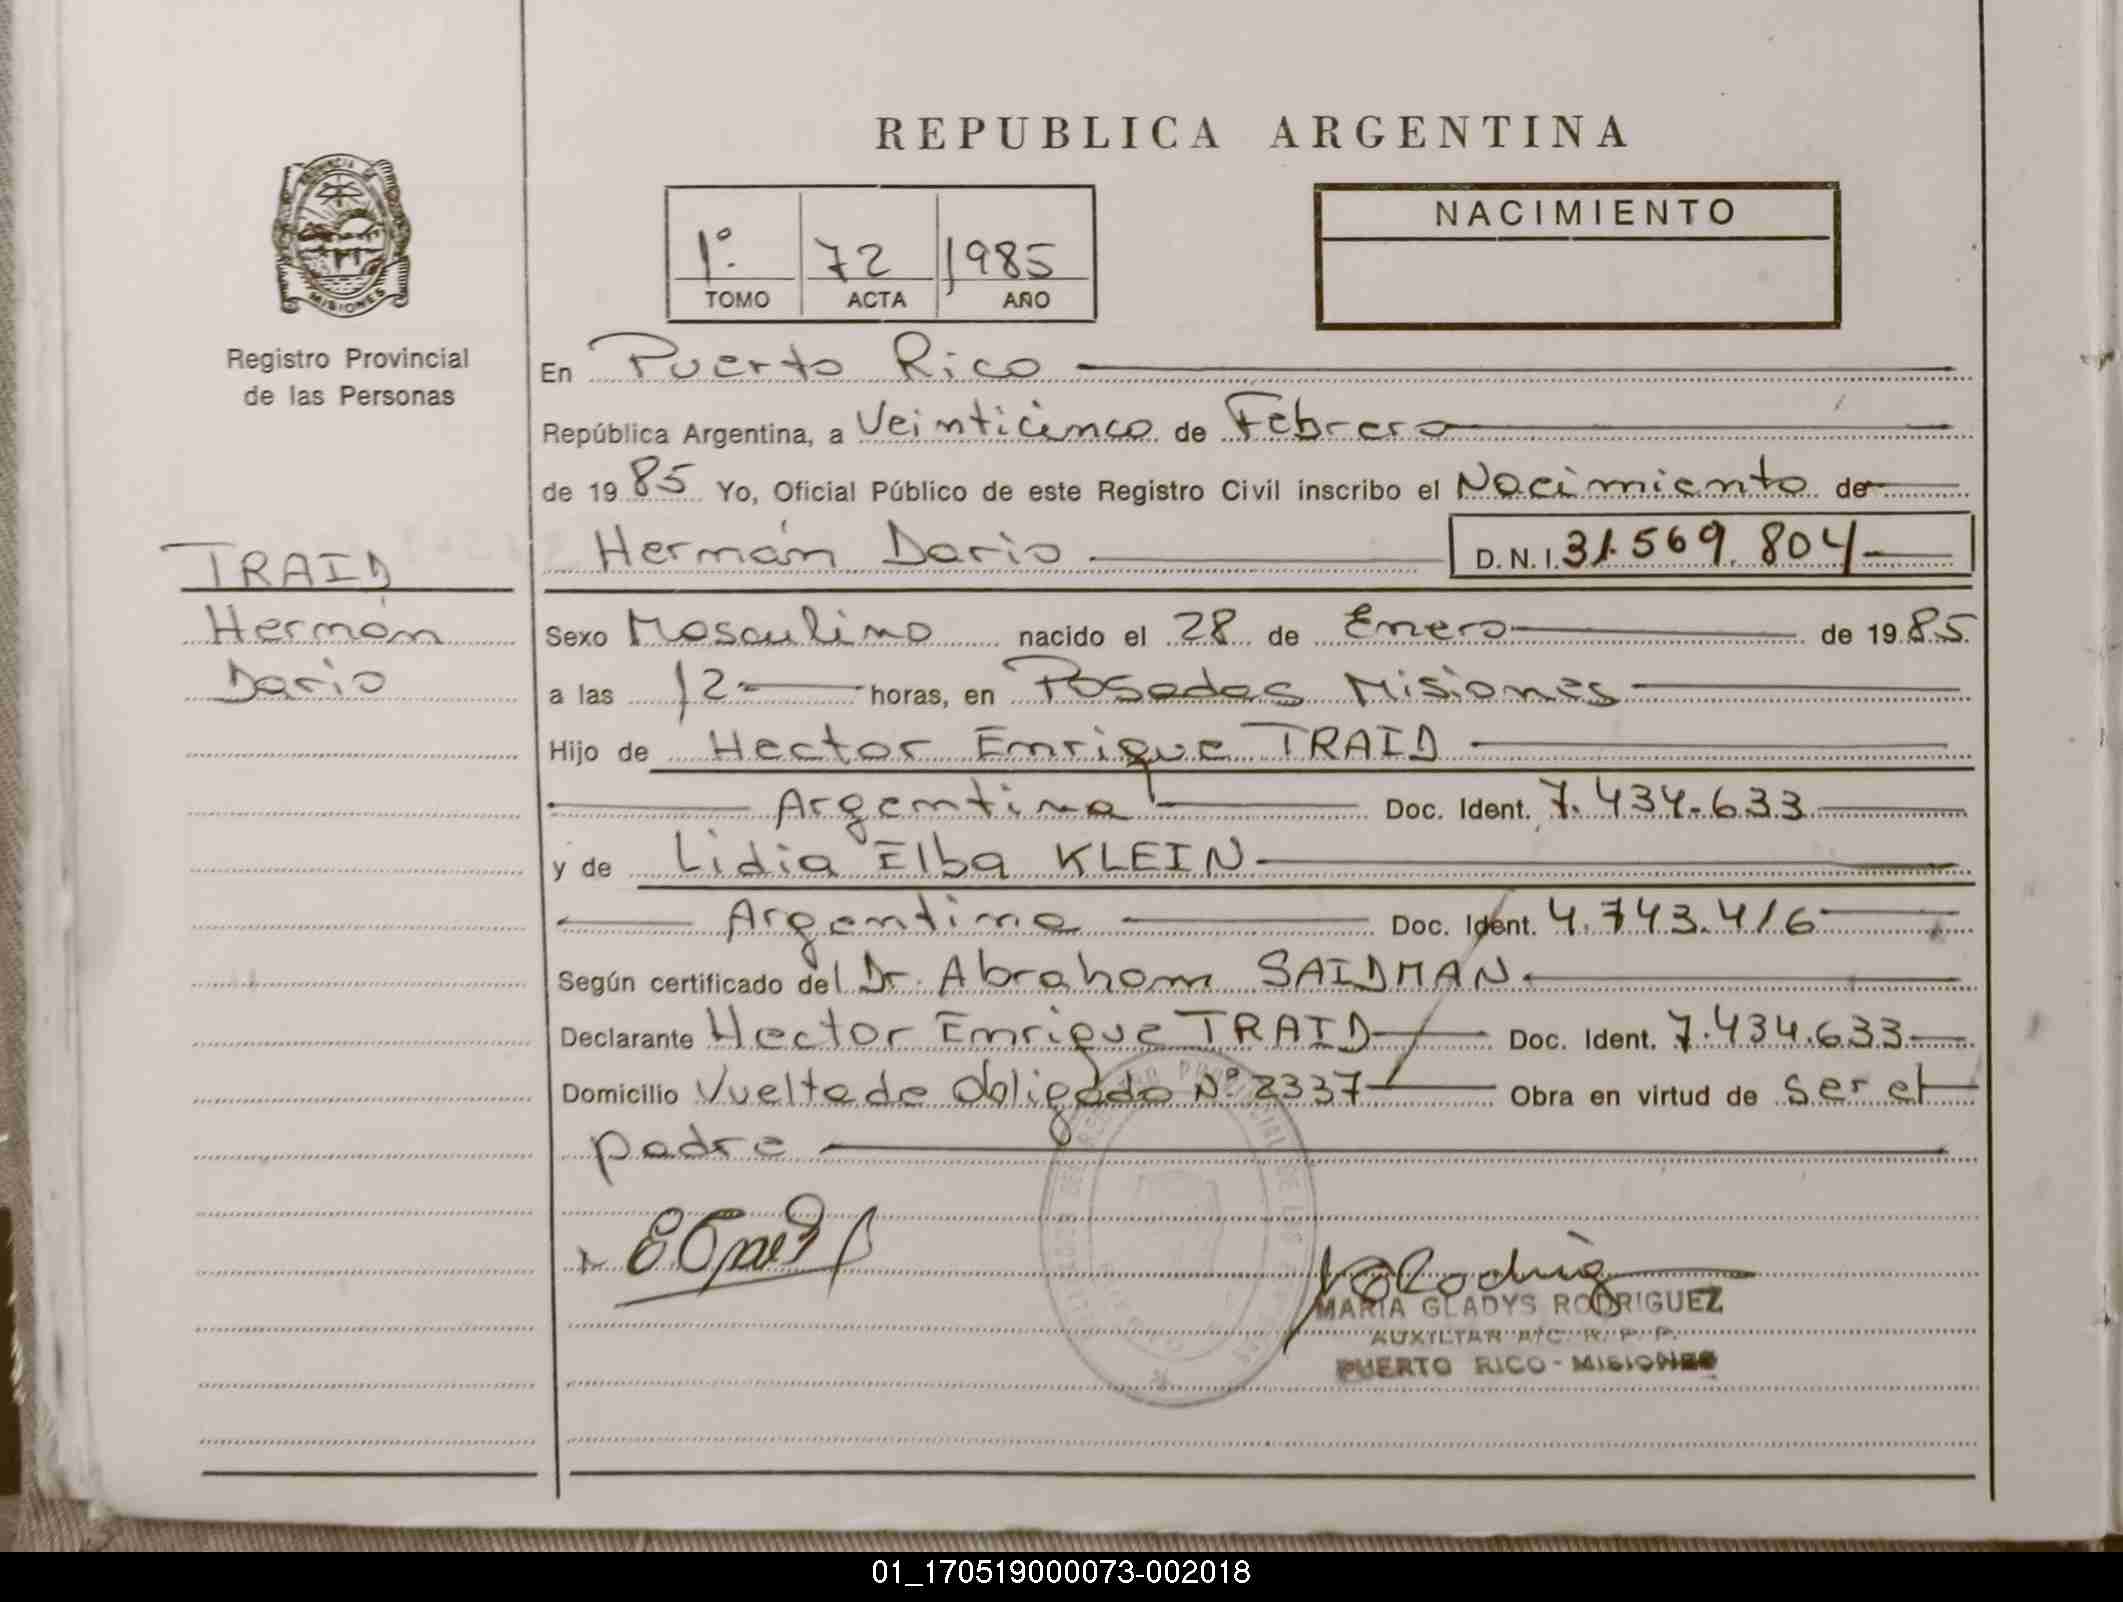 REPUBLICA ARGENTINA
PROVINCIA DE
MISIONES
Registro Provincial
de las Personas
1º. 72 1985
TOMO ACTA AÑO
NACIMIENTO
En Puerto Rico
República Argentina, a Veinticinco de Febrero
de 1985 Yo, Oficial Público de este Registro Civil inscribo el Nacimiento de
Hernán Dario D.N.I. 31.569.804
TRAID
Hernán
Dario
Sexo Masculino nacido el 28 de Enero de 1985
a las 12 horas, en Posadas Misiones
Hijo de Hector Enrique TRAID
Argentina Doc. Ident. 7.434.633
y de Lidia Elba KLEIN
Argentina Doc. Ident. 4.743.416
Según certificado del Dr. Abraham SAIDMAN
Declarante Hector Enrique TRAID Doc. Ident. 7.434.633
Domicilio Vuelta de Obligado Nº 2337 Obra en virtud de ser el
padre
MARIA GLADYS RODRIGUEZ
AUXILIAR A/C. R. P. P.
PUERTO RICO - MISIONES
01_170519000073-002018